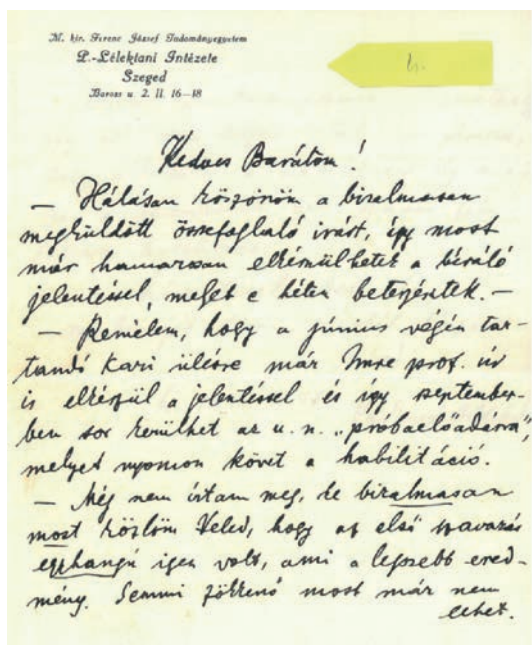 M. kir. Ferenc József Tudományegyetem
P.-Lélektani Intézete
Szeged
Boross u. 2. II. 16–18
Kedves Barátom!
— Hálásan köszönöm a bizalmasan
megküldött összefoglaló írást, így most
már hamarosan elkészülhetek a bíráló
jelentéssel, melyet e héten beterjesztek. —
— Remélem, hogy a június végén tar-
tandó kari ülésre már Imre prof. úr
is elkészül a jelentéssel és így september-
ben sor kerülhet az u. n. „próbaelőadásra”,
melyet nyomon követ a habilitáció.
— Még nem írtam meg, de bizalmasan
most közlöm Veled, hogy az első szavazás
egyhangú igen volt, ami a legszebb ered-
mény. Semmi zökkenő most már nem
lehet.